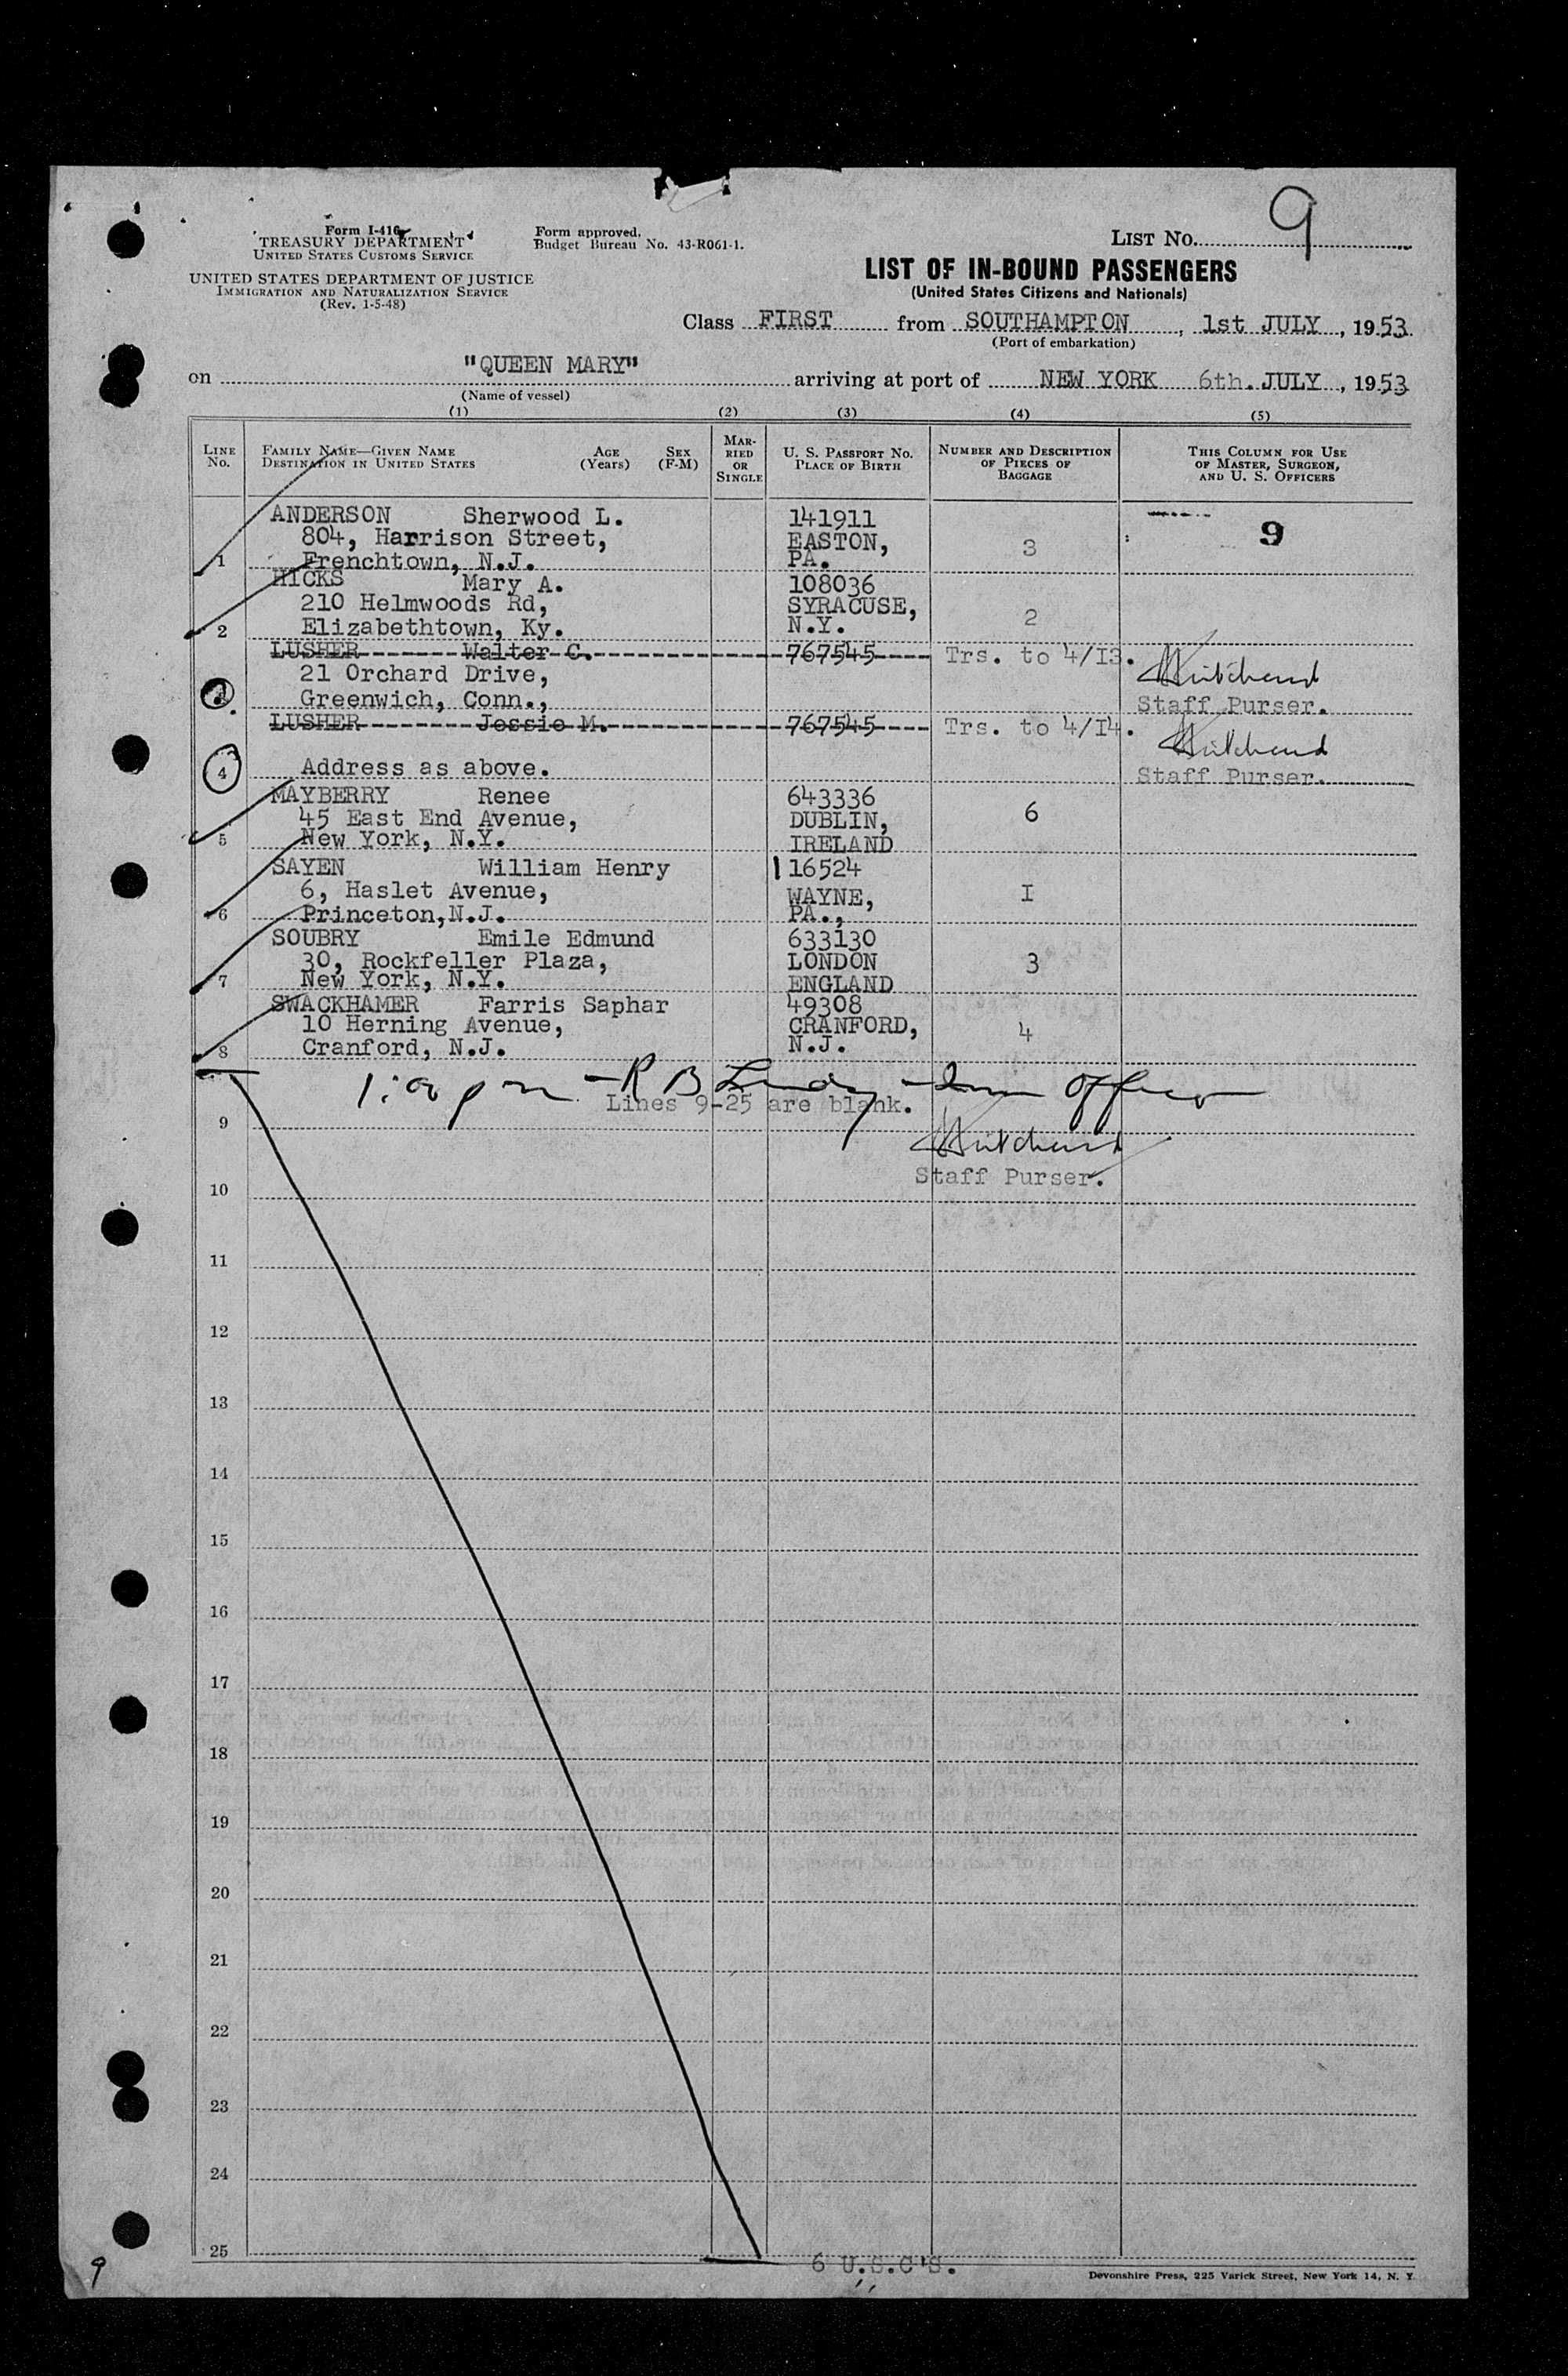 9
Form I-416
TREASURY DEPARTMENT
UNITED STATES CUSTOMS SERVICE
UNITED STATES DEPARTMENT OF JUSTICE
IMMIGRATION AND NATURALIZATION SERVICE
(Rev. 1-5-48)
Form approved.
Budget Bureau No. 43-R061-1.
LIST NO.
LIST OF IN-BOUND PASSENGERS
(United States Citizens and Nationals)
Class FIRST from SOUTHAMPTON, 1st JULY, 1953
(Port of embarkation)
on "QUEEN MARY" arriving at port of NEW YORK 6th. JULY, 1953
(Name of vessel)
(1) (2) (3) (4) (5)
LINE NO.
FAMILY NAME—GIVEN NAME
DESTINATION IN UNITED STATES
AGE (Years)
SEX (F-M)
MARRIED OR SINGLE
U. S. PASSPORT NO.
PLACE OF BIRTH
NUMBER AND DESCRIPTION OF PIECES OF BAGGAGE
THIS COLUMN FOR USE OF MASTER, SURGEON, AND U. S. OFFICERS
ANDERSON Sherwood L. 141911
804, Harrison Street, EASTON, 3 9
1 Frenchtown, N.J. PA.
HICKS Mary A. 108036
210 Helmwoods Rd, SYRACUSE, 2
2 Elizabethtown, Ky. N.Y.
LUSHER Walter C. 767545 Trs. to 4/I3.
21 Orchard Drive,
Greenwich, Conn., Staff Purser.
LUSHER Jessie M. 767545 Trs. to 4/I4.
4 Address as above. Staff Purser.
MAYBERRY Renee 643336
45 East End Avenue, DUBLIN, 6
5 New York, N.Y. IRELAND
SAYEN William Henry 116524
6, Haslet Avenue, WAYNE, I
6 Princeton, N.J. PA.,
SOUBRY Emile Edmund 633130
30, Rockfeller Plaza, LONDON 3
7 New York, N.Y. ENGLAND
SWACKHAMER Farris Saphar 49308
10 Herning Avenue, CRANFORD, 4
8 Cranford, N.J. N.J.
Lines 9-25 are blank.
9
Staff Purser.
10
11
12
13
14
15
16
17
18
19
20
21
22
23
24
25
6 U.S.C'S.
Devonshire Press, 225 Varick Street, New York 14, N. Y.
9